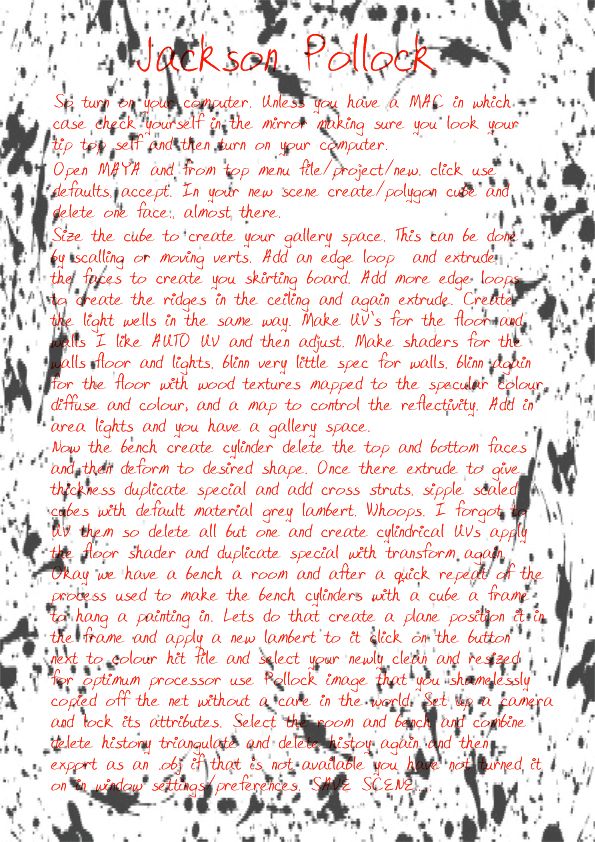 Jackson Pollock
So turn on your computer. Unless you have a MAC in which
case check yourself in the mirror making sure you look your
tip top self and then turn on your computer.
Open MAYA and from top menu file/project/new. click use
defaults, accept. In your new scene create/polygon cube and
delete one face:, almost, there.
Size the cube to create your gallery space. This can be done
by scalling or moving verts. Add an edge loop and extrude
the faces to create you skirting board. Add more edge loops
to create the ridges in the ceiling and again extrude. Create
the light wells in the same way. Make UV's for the floor and
walls I like AUTO UV and then adjust. Make shaders for the
walls floor and lights, blinn very little spec for walls, blinn again
for the floor with wood textures mapped to the specular colour,
diffuse and colour, and a map to control the reflectivity. Add in
area lights and you have a gallery space.
Now the bench create cylinder delete the top and bottom faces
and then deform to desired shape. Once there extrude to give
thickness duplicate special and add cross struts, sipple scaled
cubes with default material grey lambert. Whoops. I forgot to
UV them so delete all but one and create cylindrical UVs apply
the floor shader and duplicate special with transform again
Okay we have a bench a room and after a quick repeat of the
process used to make the bench cylinders with a cube a frame
to hang a painting in. Lets do that create a plane position it in
the frame and apply a new lambert to it click on the button
next to colour hit file and select your newly clean and resized
for optimum processor use Pollock image that you shamelessly
copied off the net without a care in the world. Set up a camera
and lock its attributes. Select the room and bench and combine
delete history triangulate and delete histoy again and then
export as an .obj if that is not available you have not turned it
on in window settings/preferences. SAVE SCENE...